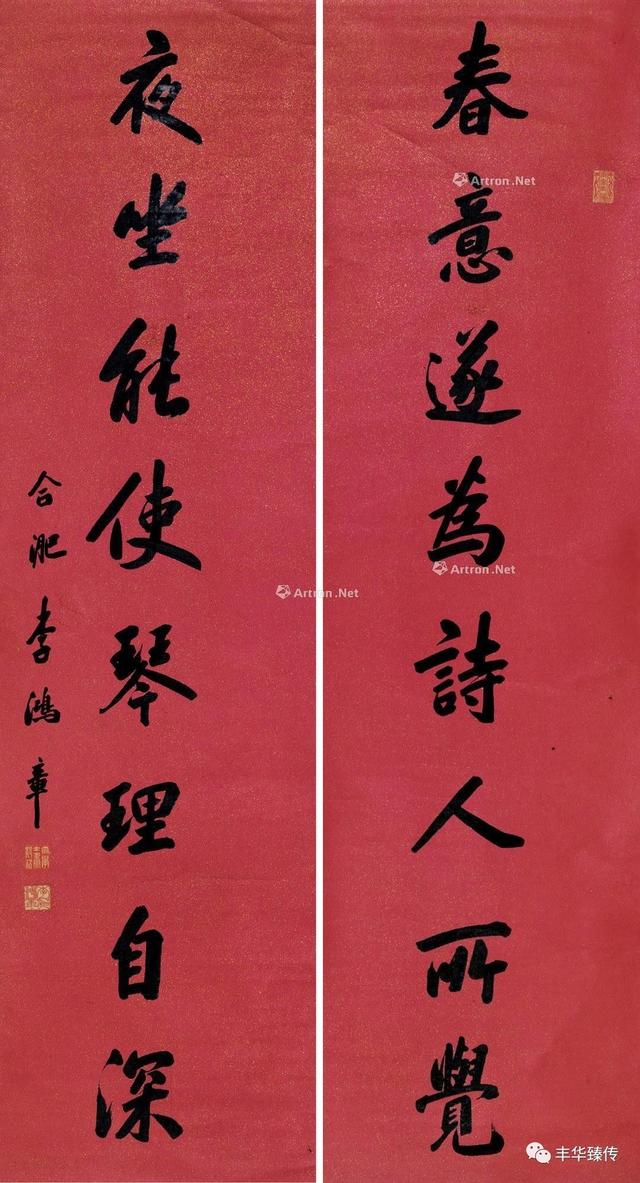 春意遂為詩人所覺
夜坐能使琴理自深
合淝李鴻章
Artron.Net
Artron.Net
Artron.Net
丰华臻传